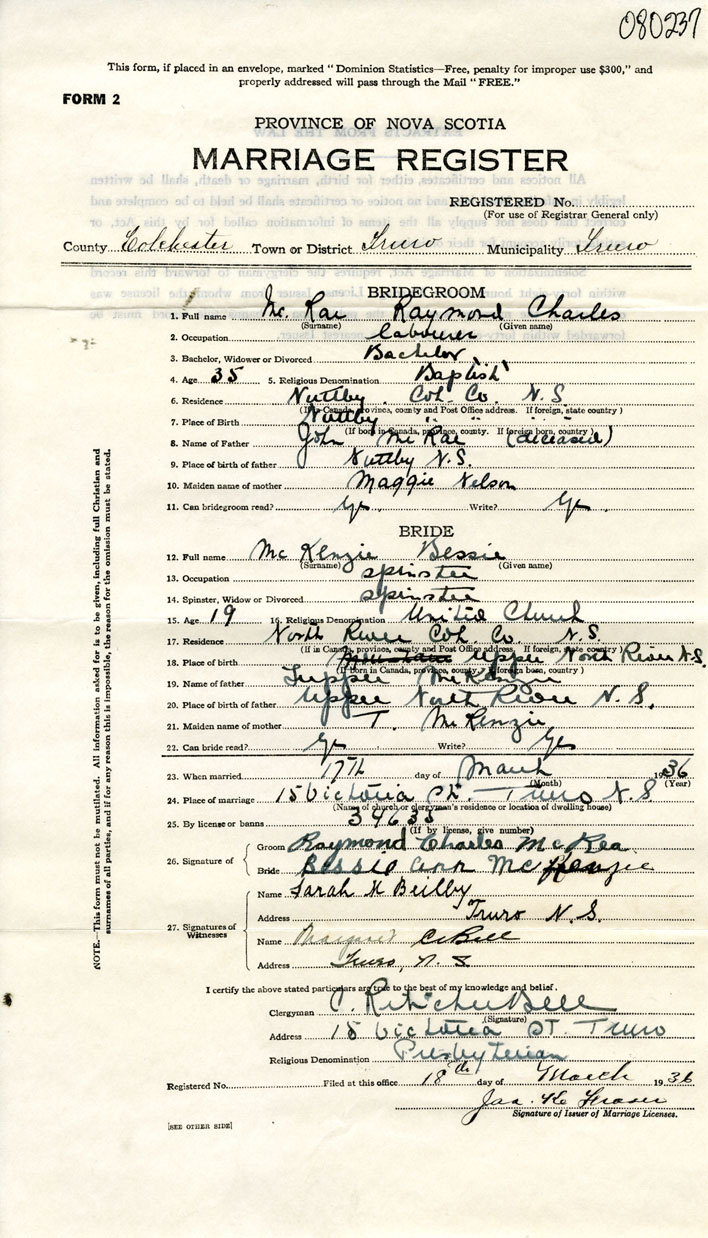 080237
This form, if placed in an envelope, marked "Dominion Statistics—Free, penalty for improper use $300," and
properly addressed will pass through the Mail "FREE."
FORM 2
PROVINCE OF NOVA SCOTIA
MARRIAGE REGISTER
REGISTERED No.
(For use of Registrar General only)
County Colchester Town or District Truro Municipality Truro
BRIDEGROOM
1. Full name Mc Rae Raymond Charles
(Surname) (Given name)
2. Occupation labourer
3. Bachelor, Widower or Divorced Bachelor
4. Age 35 5. Religious Denomination Baptist
6. Residence Nuttby Col. Co. N.S.
(If in Canada, province, county and Post Office address. If foreign, state country)
7. Place of Birth Nuttby " " " "
(If born in Canada, province, county. If foreign born, country)
8. Name of Father John McRae (deceased)
9. Place of birth of father Nuttby N.S.
10. Maiden name of mother Maggie Nelson
11. Can bridegroom read? Yes Write? Yes
BRIDE
12. Full name McKenzie Bessie
(Surname) (Given name)
13. Occupation spinster
14. Spinster, Widow or Divorced spinster
15. Age 19 16. Religious Denomination United Church
17. Residence North River Col. Co. N.S.
(If in Canada, province, county and Post Office address. If foreign, state country)
18. Place of birth Upper North River N.S.
(If born in Canada, province, county. If foreign born, country)
19. Name of father Tupper McKenzie
20. Place of birth of father Upper North River N.S.
21. Maiden name of mother T. McKenzie
22. Can bride read? Yes Write? Yes
23. When married 17th day of March 1936
(Month) (Year)
24. Place of marriage 15 Victoria St. Truro N S
(Name of church or clergyman's residence or location of dwelling house)
25. By license or banns 34635
(If by license, give number)
26. Signature of
Groom Raymond Charles McRea
Bride Bessie Ann McKenzie
27. Signatures of Witnesses
Name Sarah M Beilby
Address Truro N.S.
Name Margaret C Bell
Address Truro, N. S
I certify the above stated particulars are true to the best of my knowledge and belief.
Clergyman C. Ritchie Bell
(Signature)
Address 15 Victoria ST. Truro
Religious Denomination Presbyterian
Registered No. Filed at this office 18th day of March 1936
Jas. K. Fraser
Signature of Issuer of Marriage Licenses.
[SEE OTHER SIDE]
NOTE.—This form must not be mutilated. All information asked for is to be given, including full Christian and
surnames of all parties, and if for any reason this is impossible, the reason for the omission must be stated.